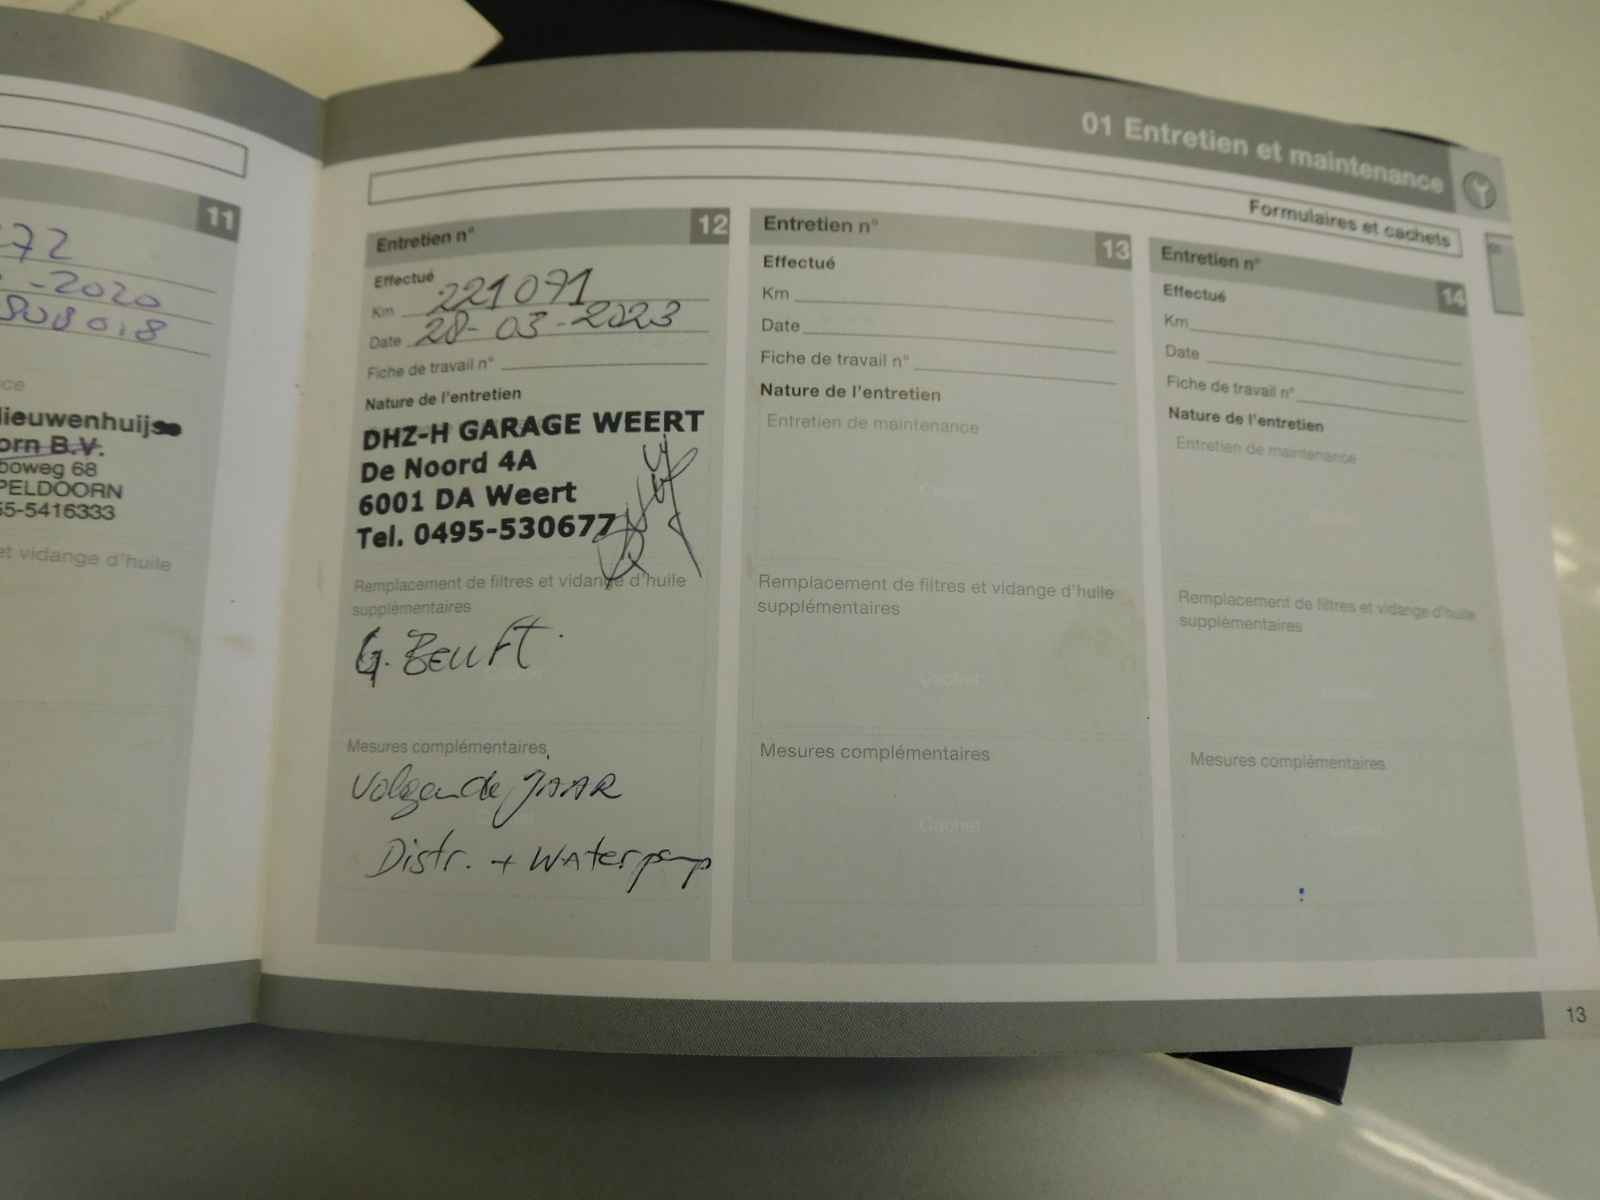 01 Entretien et maintenance
Formulaires et cachets
11
-2020
ce
Nieuwenhuijse
orn B.V.
boweg 68
PELDOORN
55-5416333
et vidange d'huile
Entretien n° 12
Effectué
Km 221071
Date 28-03-2023
Fiche de travail n°
Nature de l'entretien
DHZ-H GARAGE WEERT
De Noord 4A
6001 DA Weert
Tel. 0495-530677
Remplacement de filtres et vidange d'huile
supplémentaires
G. BEURT.
Mesures complémentaires
Volgende JAAR
Distr. + Waterpomp
Entretien n° 13
Effectué
Km
Date
Fiche de travail n°
Nature de l'entretien
Entretien de maintenance
Cachet
Remplacement de filtres et vidange d'huile
supplémentaires
Cachet
Mesures complémentaires
Cachet
Entretien n° 14
Effectué
Km
Date
Fiche de travail n°
Nature de l'entretien
Entretien de maintenance
Remplacement de filtres et vidange d'huile
supplémentaires
Mesures complémentaires
13